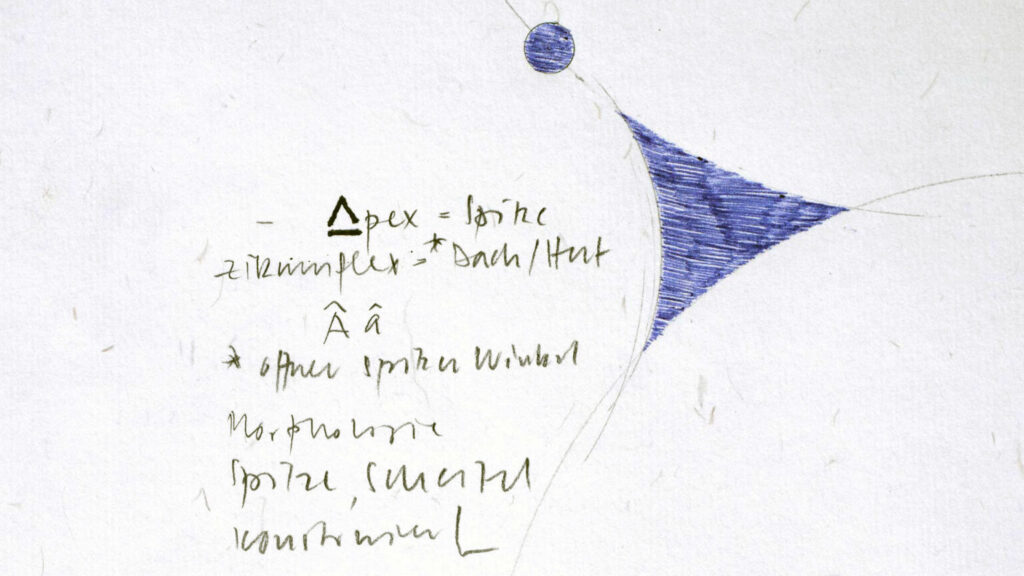 - Δpex = Spitze
Zirkumflex = * Dach/Hut
Â â
* offner spitzer Winkel
Morphologie
Spitze, Scheitel
konstruier